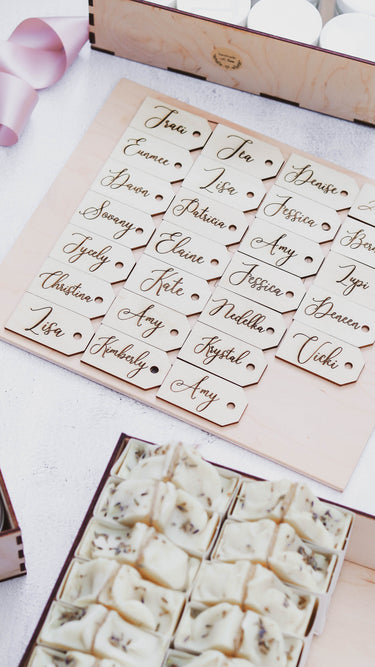 Traci
Eunmee
Dawn
Sovany
Tycely
Christina
Lisa
Tea
Lisa
Patricia
Elaine
Kate
Amy
Kimberly
Denise
Jessica
Amy
Jessica
Nedelka
Krystal
Amy
Lypi
Deneen
Vicki